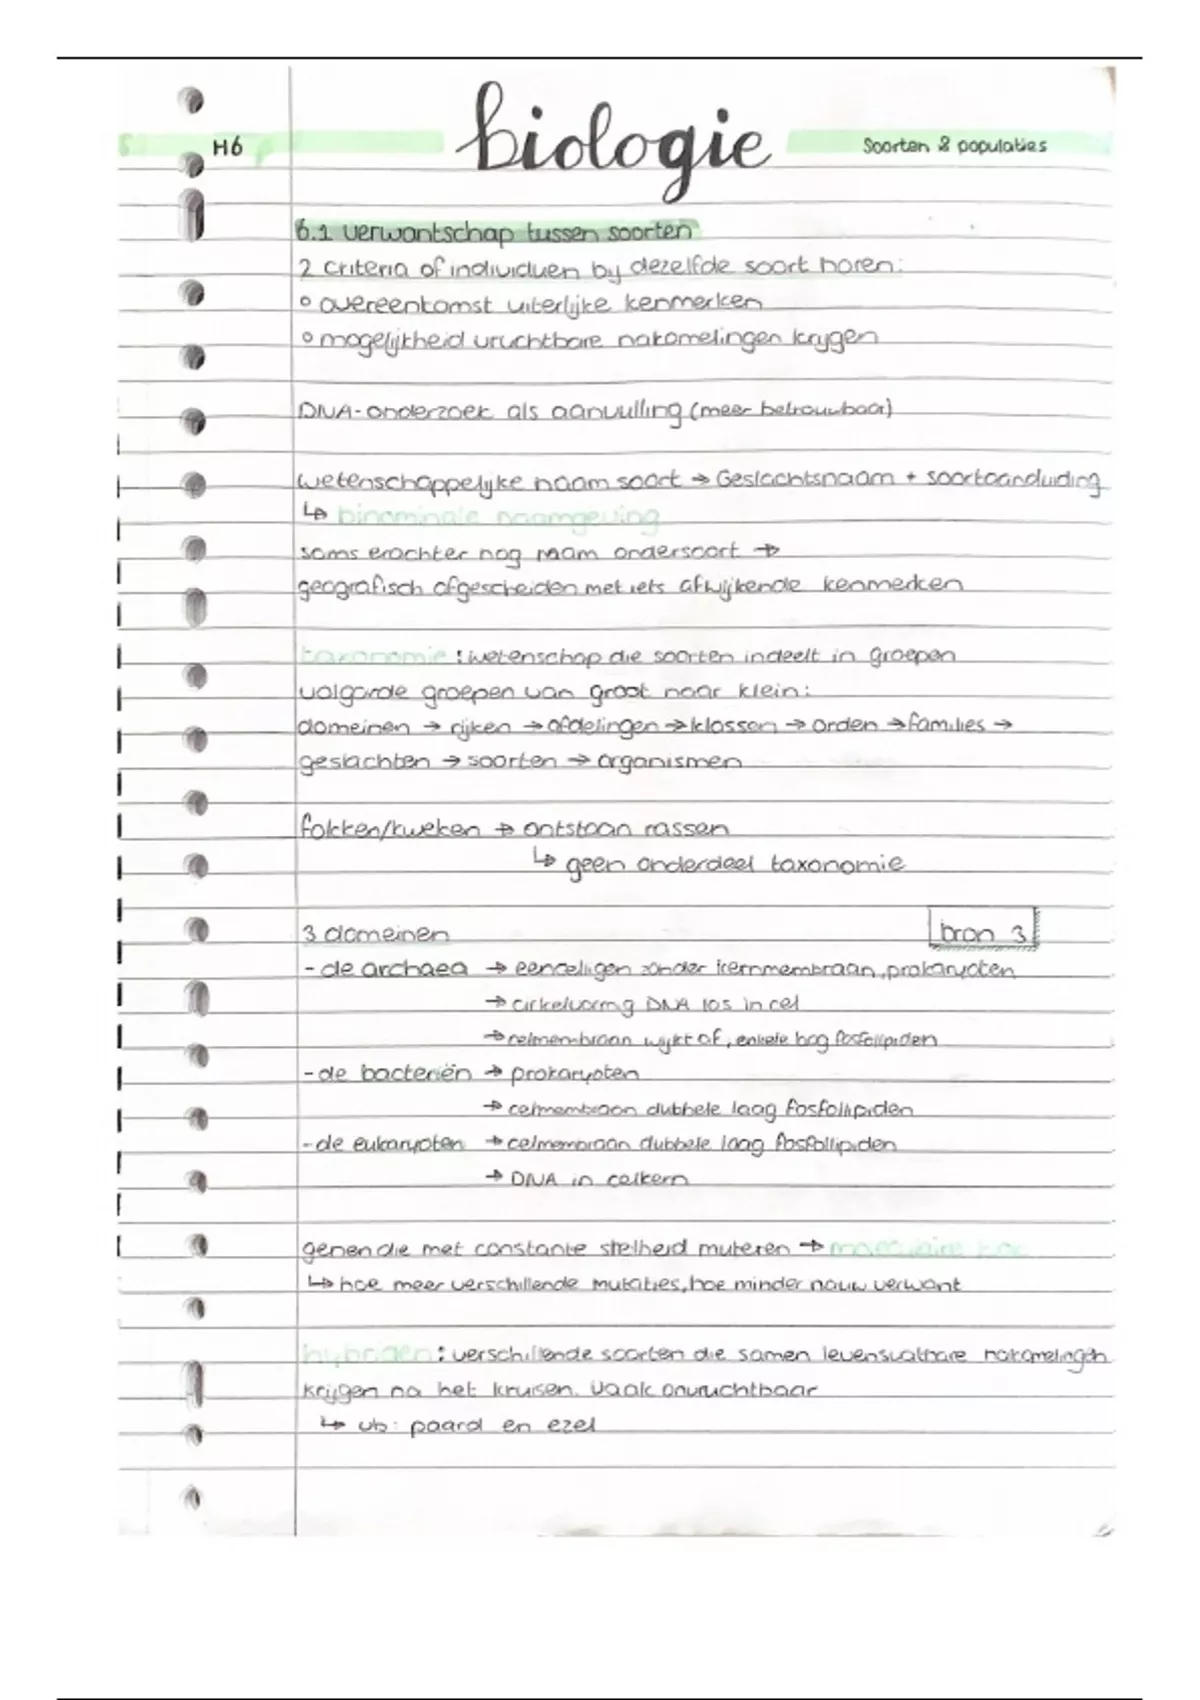 H6
biologie
Soorten & populaties
6.1 verwantschap tussen soorten
2 criteria of individuen bij dezelfde soort horen:
° overeenkomst uiterlijke kenmerken
° mogelijkheid vruchtbare nakomelingen krijgen
DNA-onderzoek als aanvulling (meer betrouwbaar)
wetenschappelijke naam soort → Geslachtsnaam + soortaanduiding
↳ binominale naamgeving
soms erachter nog naam ondersoort →
geografisch afgescheiden met iets afwijkende kenmerken
taxonomie: wetenschap die soorten indeelt in groepen
volgorde groepen van groot naar klein:
domeinen → rijken → afdelingen → klassen → orden → families →
geslachten → soorten → organismen
fokken/kweken → ontstaan rassen
↳ geen onderdeel taxonomie
3 domeinen
bron 3
- de archaea → eencelligen zonder kernmembraan, prokaryoten
→ cirkelvormig DNA los in cel
→ celmembraan wijkt af, enkele laag fosfolipiden
- de bacteriën → prokaryoten
→ celmembraan dubbele laag fosfolipiden
- de eukaryoten → celmembraan dubbele laag fosfollipiden
→ DNA in celkern
genen die met constante snelheid muteren → moleculaire klok
↳ hoe meer verschillende mutaties, hoe minder nauw verwant
hybriden: verschillende soorten die samen levensvatbare nakomelingen
krijgen na het kruisen. Vaak onvruchtbaar
↳ vb: paard en ezel